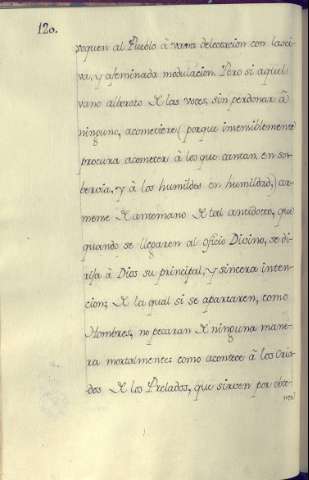 120.
voquen al Pueblo à vana delectacion con lasci-
va, y afeminada modulacion. Pero si aquel
vano alboroto de las voces, sin perdonar à
ninguno, acometiere (porque insensiblemente
procura acometer à los que cantan, en sob-
bervia, y à los humildes en humildad,) ar-
mene de antemano de tal antidoto, que
quando se llegaren al Oficio Divino, se di-
rija à Dios su principal, y sincera inten-
cion; de la qual si se apartaren, como
Hombres, no pecaran de ninguna mane-
ra mortalmente: como acontece à los Cria-
dos de los Prelados, que sirven por obte-
ner